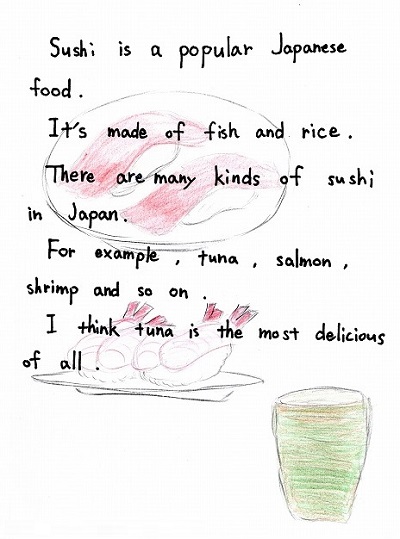 Sushi is a popular Japanese
food.
It's made of fish and rice.
There are many kinds of sushi
in Japan.
For example, tuna, salmon,
shrimp and so on.
I think tuna is the most delicious
of all.